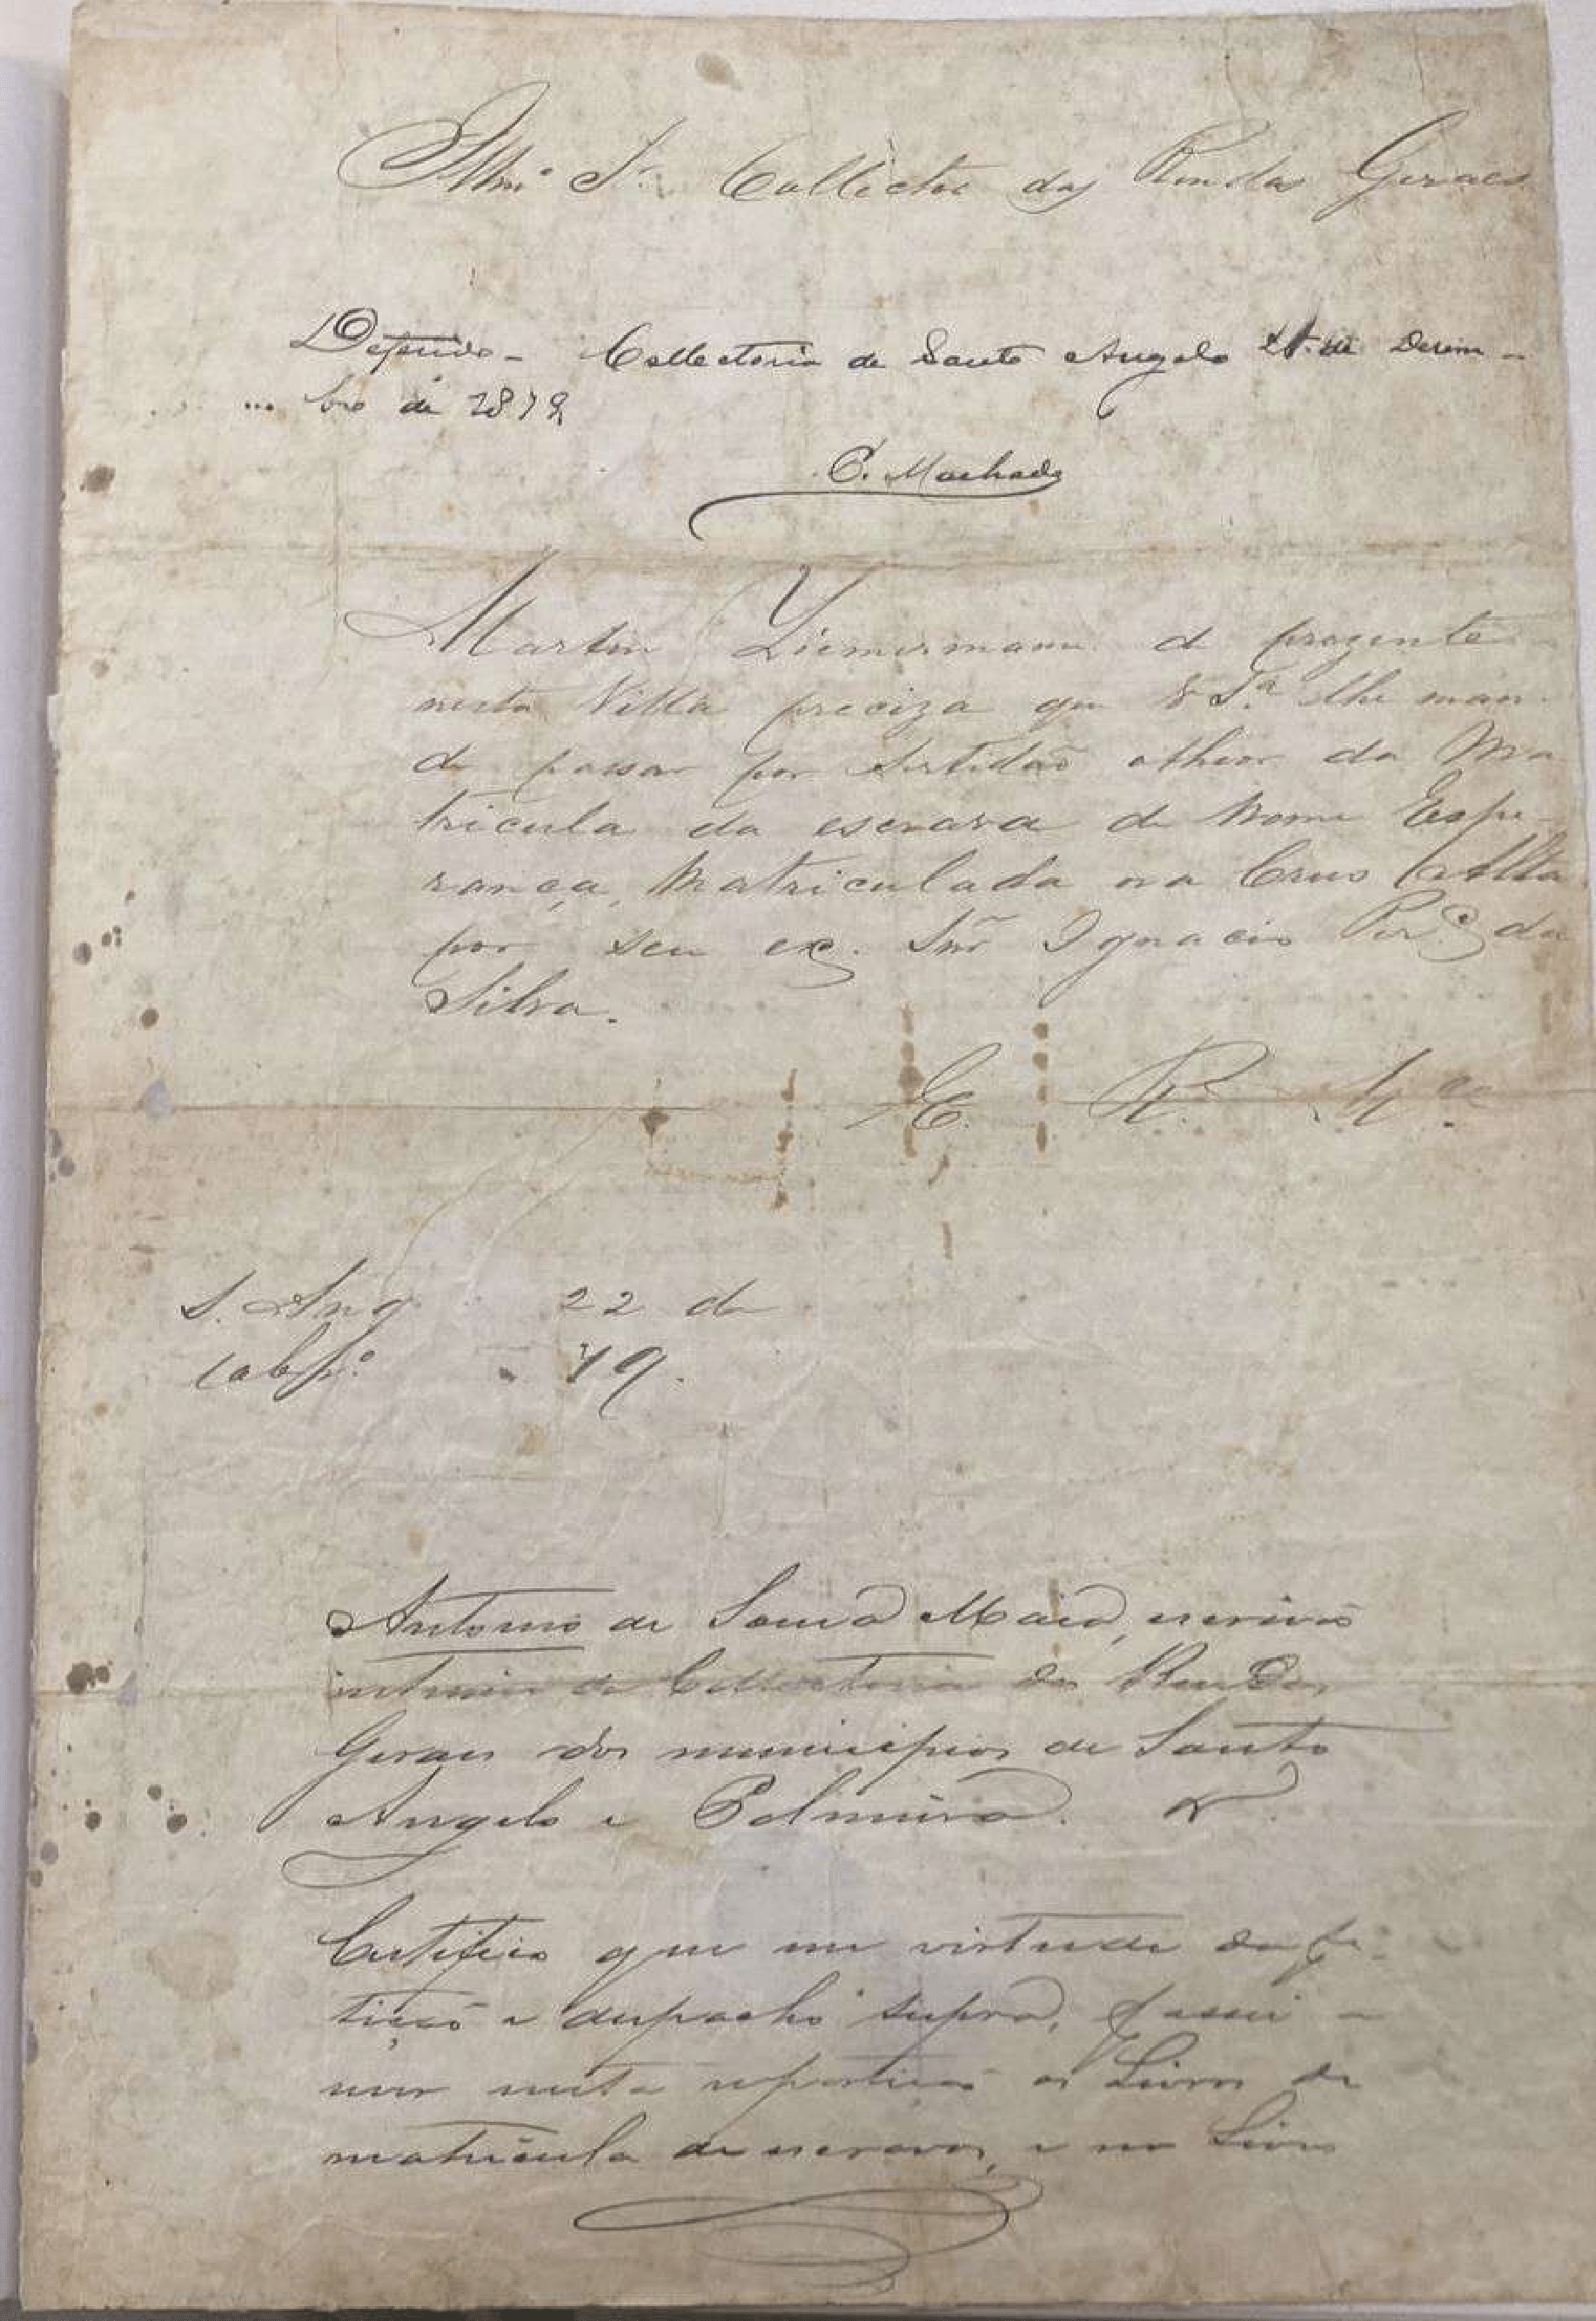 Illmo Sr. Collector das Rendas Geraes
Deferido - Collectoria de Santo Angelo de Dezem-
bro de 1879
C. Machado
Martin Ziemermann de prezente
nesta Villa preciza que V Sa. lhe man-
de passar por Sertidão otheor da Ma
tricula da escrava de Nome Espe-
rança, Matriculada na Crus Alta
por seu ex. Snr Ignacio Per.a da
Silva.
E. R. M.ce
S. Ang 22 de
79.
Antonio de Souza Maia, escrivão
interino da Collectoria das Rendas
Geraes dos municipios de Santo
Angelo e Palmeira.
Certifico que em virtude da pe-
tição e despacho supra, passei a
ver nesta repartição os Livros de
matricula de escravos, e no Livro